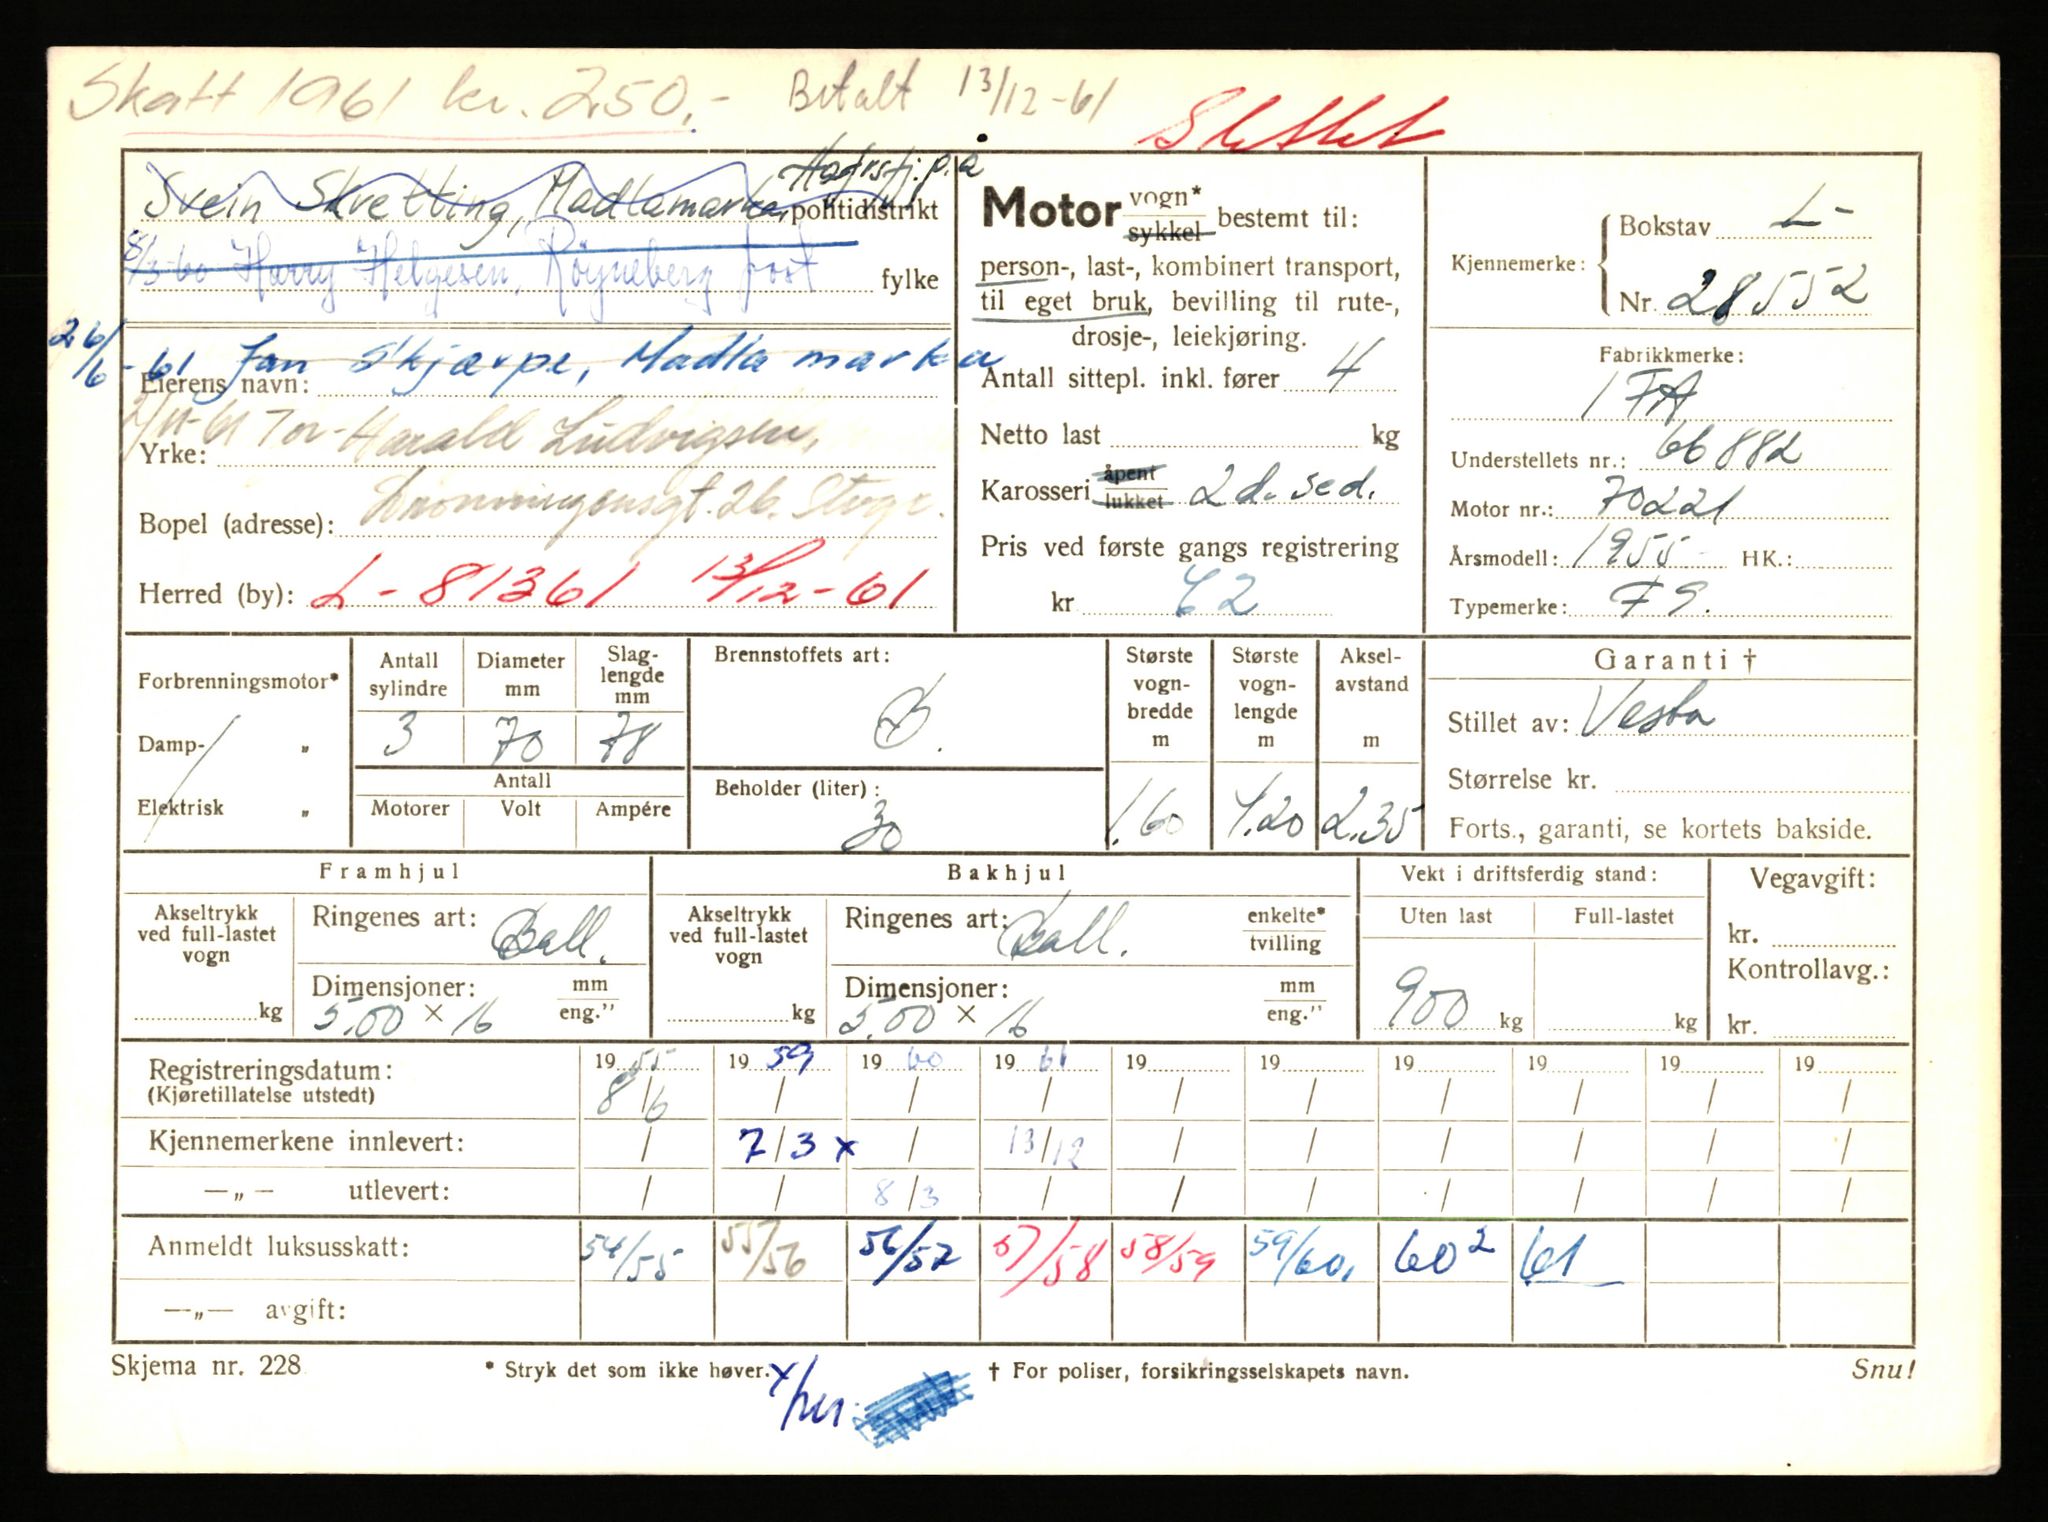 Skatt 1961 kr. 250,- Betalt 13/12-61
Slettet
Svein Skretting, Madlamarka, Hafrsfj. p.å
politidistrikt
8/3-60 Harry Helgesen, Röyneberg post
fylke
26/6-61 Jan Skjærpe, Madlamarka
Eierens navn:
2/11-61 Tor-Harald Ludvigsen,
Yrke:
Dronningensgt. 26. Stvgr.
Bopel (adresse):
Herred (by): L - 81361 13/12-61
Motor vogn* sykkel bestemt til:
person-, last-, kombinert transport,
til eget bruk, bevilling til rute-,
drosje-, leiekjøring.
Antall sittepl. inkl. fører 4
Netto last kg
Karosseri åpent lukket 2 d. sed.
Pris ved første gangs registrering
kr 62
Kjennemerke: Bokstav L-
Nr. 28552
Fabrikkmerke:
IFA
Understellets nr.: 66882
Motor nr.: 70221
Årsmodell: 1955 HK.:
Typemerke: F9.
Forbrenningsmotor*
Damp- „
Elektrisk „
Antall sylindre Diameter mm Slag-lengde mm
3 70 78
Antall
Motorer Volt Ampére
Brennstoffets art:
B.
Beholder (liter):
30
Største vogn-bredde m Største vogn-lengde m Aksel-avstand m
1.60 4.20 2.35
Garanti †
Stillet av: Vesta
Størrelse kr.
Forts., garanti, se kortets bakside.
Framhjul
Akseltrykk ved full-lastet vogn
kg
Ringenes art: Ball.
Dimensjoner: mm
5.00 × 16 eng."
Bakhjul
Akseltrykk ved full-lastet vogn
kg
Ringenes art: Ball. enkelte* tvilling
Dimensjoner: mm
5.00 × 16 eng."
Vekt i driftsferdig stand:
Uten last Full-lastet
900 kg kg
Vegavgift:
kr.
Kontrollavg.:
kr.
Registreringsdatum: 1955 1959 1960 1961 19 19 19 19 19 19
(Kjøretillatelse utstedt) 8/6 / / / / / / / / /
Kjennemerkene innlevert: / 7/3 x / 13/12 / / / / / /
—„— utlevert: / / 8/3 / / / / / / /
Anmeldt luksusskatt: 54/55 55/56 56/57 57/58 58/59 59/60, 60² 61
—„— avgift:
Skjema nr. 228
* Stryk det som ikke høver.
† For poliser, forsikringsselskapets navn.
Snu!